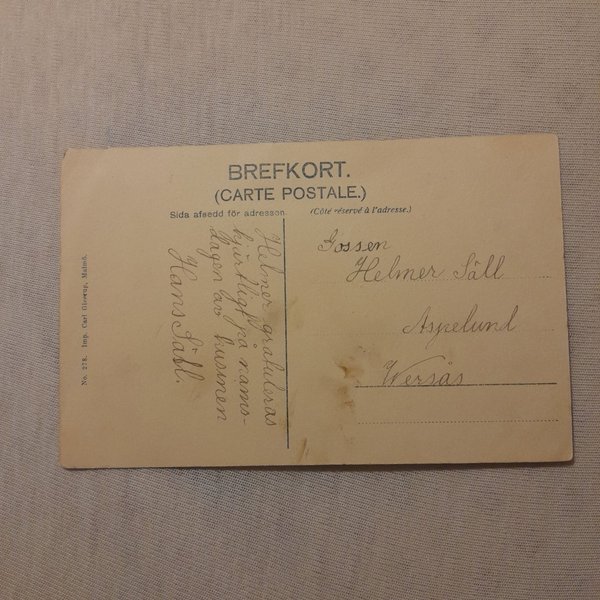 BREFKORT.
(CARTE POSTALE.)
Sida afsedd för adressen.
(Côté réservé à l'adresse.)
Gossen
Helmer Säll
Aspelund
Wersås
Helmer gratuleras
hjertligt på namns-
dagen av kusinen
Hans Säll.
No. 278. Imp. Carl Gleerup, Malmö.